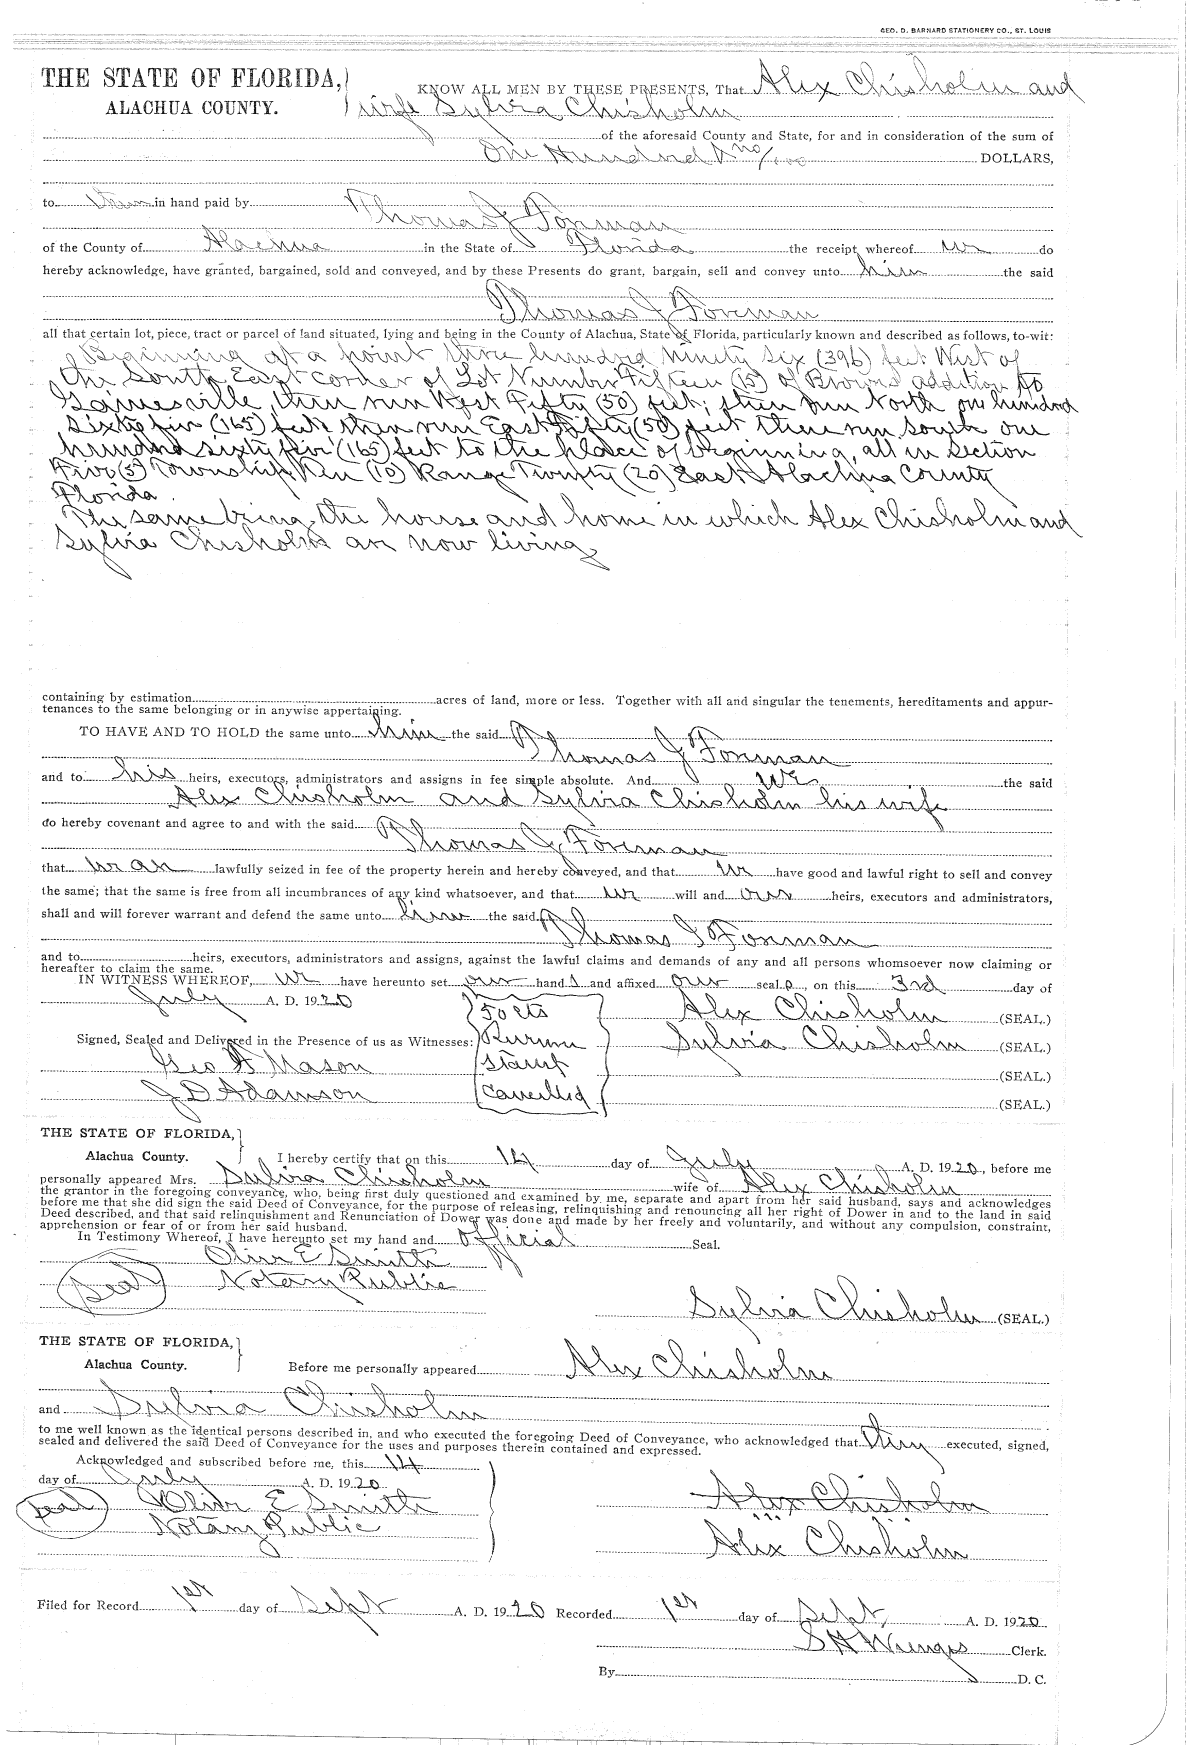 GEO. D. BARNARD STATIONERY CO., ST. LOUIS
THE STATE OF FLORIDA,
ALACHUA COUNTY.
KNOW ALL MEN BY THESE PRESENTS, That Alex Chisholm and
wife Sylvia Chisholm
of the aforesaid County and State, for and in consideration of the sum of
One Hundred & no/100 DOLLARS,
to them in hand paid by
Thomas J Foreman
of the County of Alachua in the State of Florida the receipt whereof we do
hereby acknowledge, have granted, bargained, sold and conveyed, and by these Presents do grant, bargain, sell and convey unto him the said
Thomas J Foreman
all that certain lot, piece, tract or parcel of land situated, lying and being in the County of Alachua, State of Florida, particularly known and described as follows, to-wit:
Beginning at a point three hundred ninety six (396) feet West of
the South East corner of Lot Number Fifteen (15) of Browns addition to
Gainesville, then run West Fifty (50) feet; then run North one hundred
sixty five (165) feet then run East Fifty (50) feet then run south one
hundred sixty five (165) feet to the place of beginning, all in Section
Five (5) Township Ten (10) Range Twenty (20) East Alachua County
Florida.
The same being the house and home in which Alex Chisholm and
Sylvia Chisholm are now living
containing by estimation acres of land, more or less. Together with all and singular the tenements, hereditaments and appur-
tenances to the same belonging or in anywise appertaining.
TO HAVE AND TO HOLD the same unto him the said
Thomas J Foreman
and to his heirs, executors, administrators and assigns in fee simple absolute. And we the said
Alex Chisholm and Sylvia Chisholm his wife
do hereby covenant and agree to and with the said
Thomas J Foreman
that we are lawfully seized in fee of the property herein and hereby conveyed, and that we have good and lawful right to sell and convey
the same; that the same is free from all incumbrances of any kind whatsoever, and that we will and our heirs, executors and administrators,
shall and will forever warrant and defend the same unto him the said
Thomas J Foreman
and to heirs, executors, administrators and assigns, against the lawful claims and demands of any and all persons whomsoever now claiming or
hereafter to claim the same.
IN WITNESS WHEREOF, we have hereunto set our hand s and affixed our seal s, on this 3rd day of
July A. D. 1920
50 cts
Revenue
stamp
cancelled
Alex Chisholm (SEAL.)
Sylvia Chisholm (SEAL.)
(SEAL.)
(SEAL.)
Signed, Sealed and Delivered in the Presence of us as Witnesses:
Geo A Mason
J D Adamson
THE STATE OF FLORIDA,
Alachua County.
I hereby certify that on this 14 day of July A. D. 1920, before me
personally appeared Mrs. Sylvia Chisholm wife of Alex Chisholm
the grantor in the foregoing conveyance, who, being first duly questioned and examined by me, separate and apart from her said husband, says and acknowledges
before me that she did sign the said Deed of Conveyance, for the purpose of releasing, relinquishing and renouncing all her right of Dower in and to the land in said
Deed described, and that said relinquishment and Renunciation of Dower was done and made by her freely and voluntarily, and without any compulsion, constraint,
apprehension or fear of or from her said husband.
In Testimony Whereof, I have hereunto set my hand and official Seal.
Olive E Smith
Notary Public
Seal
Sylvia Chisholm (SEAL.)
THE STATE OF FLORIDA,
Alachua County.
Before me personally appeared Alex Chisholm
and Sylvia Chisholm
to me well known as the identical persons described in, and who executed the foregoing Deed of Conveyance, who acknowledged that they executed, signed,
sealed and delivered the said Deed of Conveyance for the uses and purposes therein contained and expressed.
Acknowledged and subscribed before me, this 14
day of July A. D. 1920
Seal
Olive E Smith
Notary Public
Alex Chisholm
Alex Chisholm
Filed for Record 1st day of Sept A. D. 1920 Recorded 1st day of Sept. A. D. 1920
S H Wienges Clerk.
By D. C.